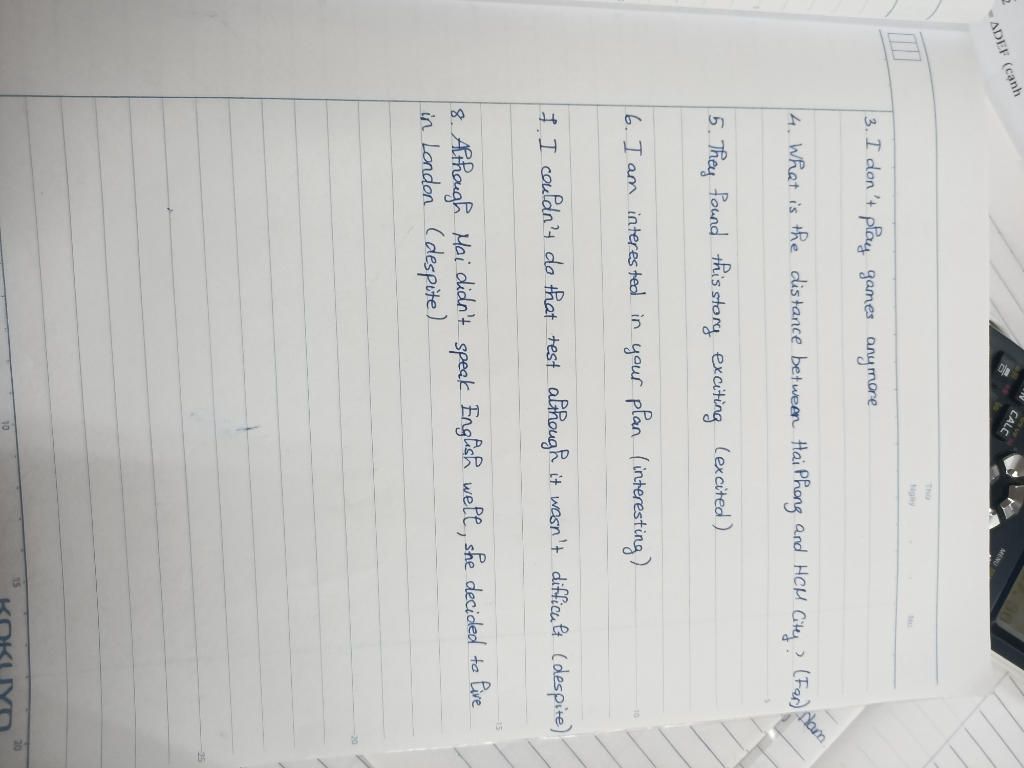 3. I don't play games anymore
4. What is the distance between Hai Phong and HCM City? (Far)
Nam
5. They found this story exciting (excited)
6. I am interested in your plan (interesting)
7. I couldn't do that test although it wasn't difficult (despite)
8. Although Mai didn't speak English well, she decided to live
in London (despite)
Thứ
Ngày
No.
ΔDEF (cạnh
CALC
MENU
5
10
15
20
25
10
15
20
KOKUYO